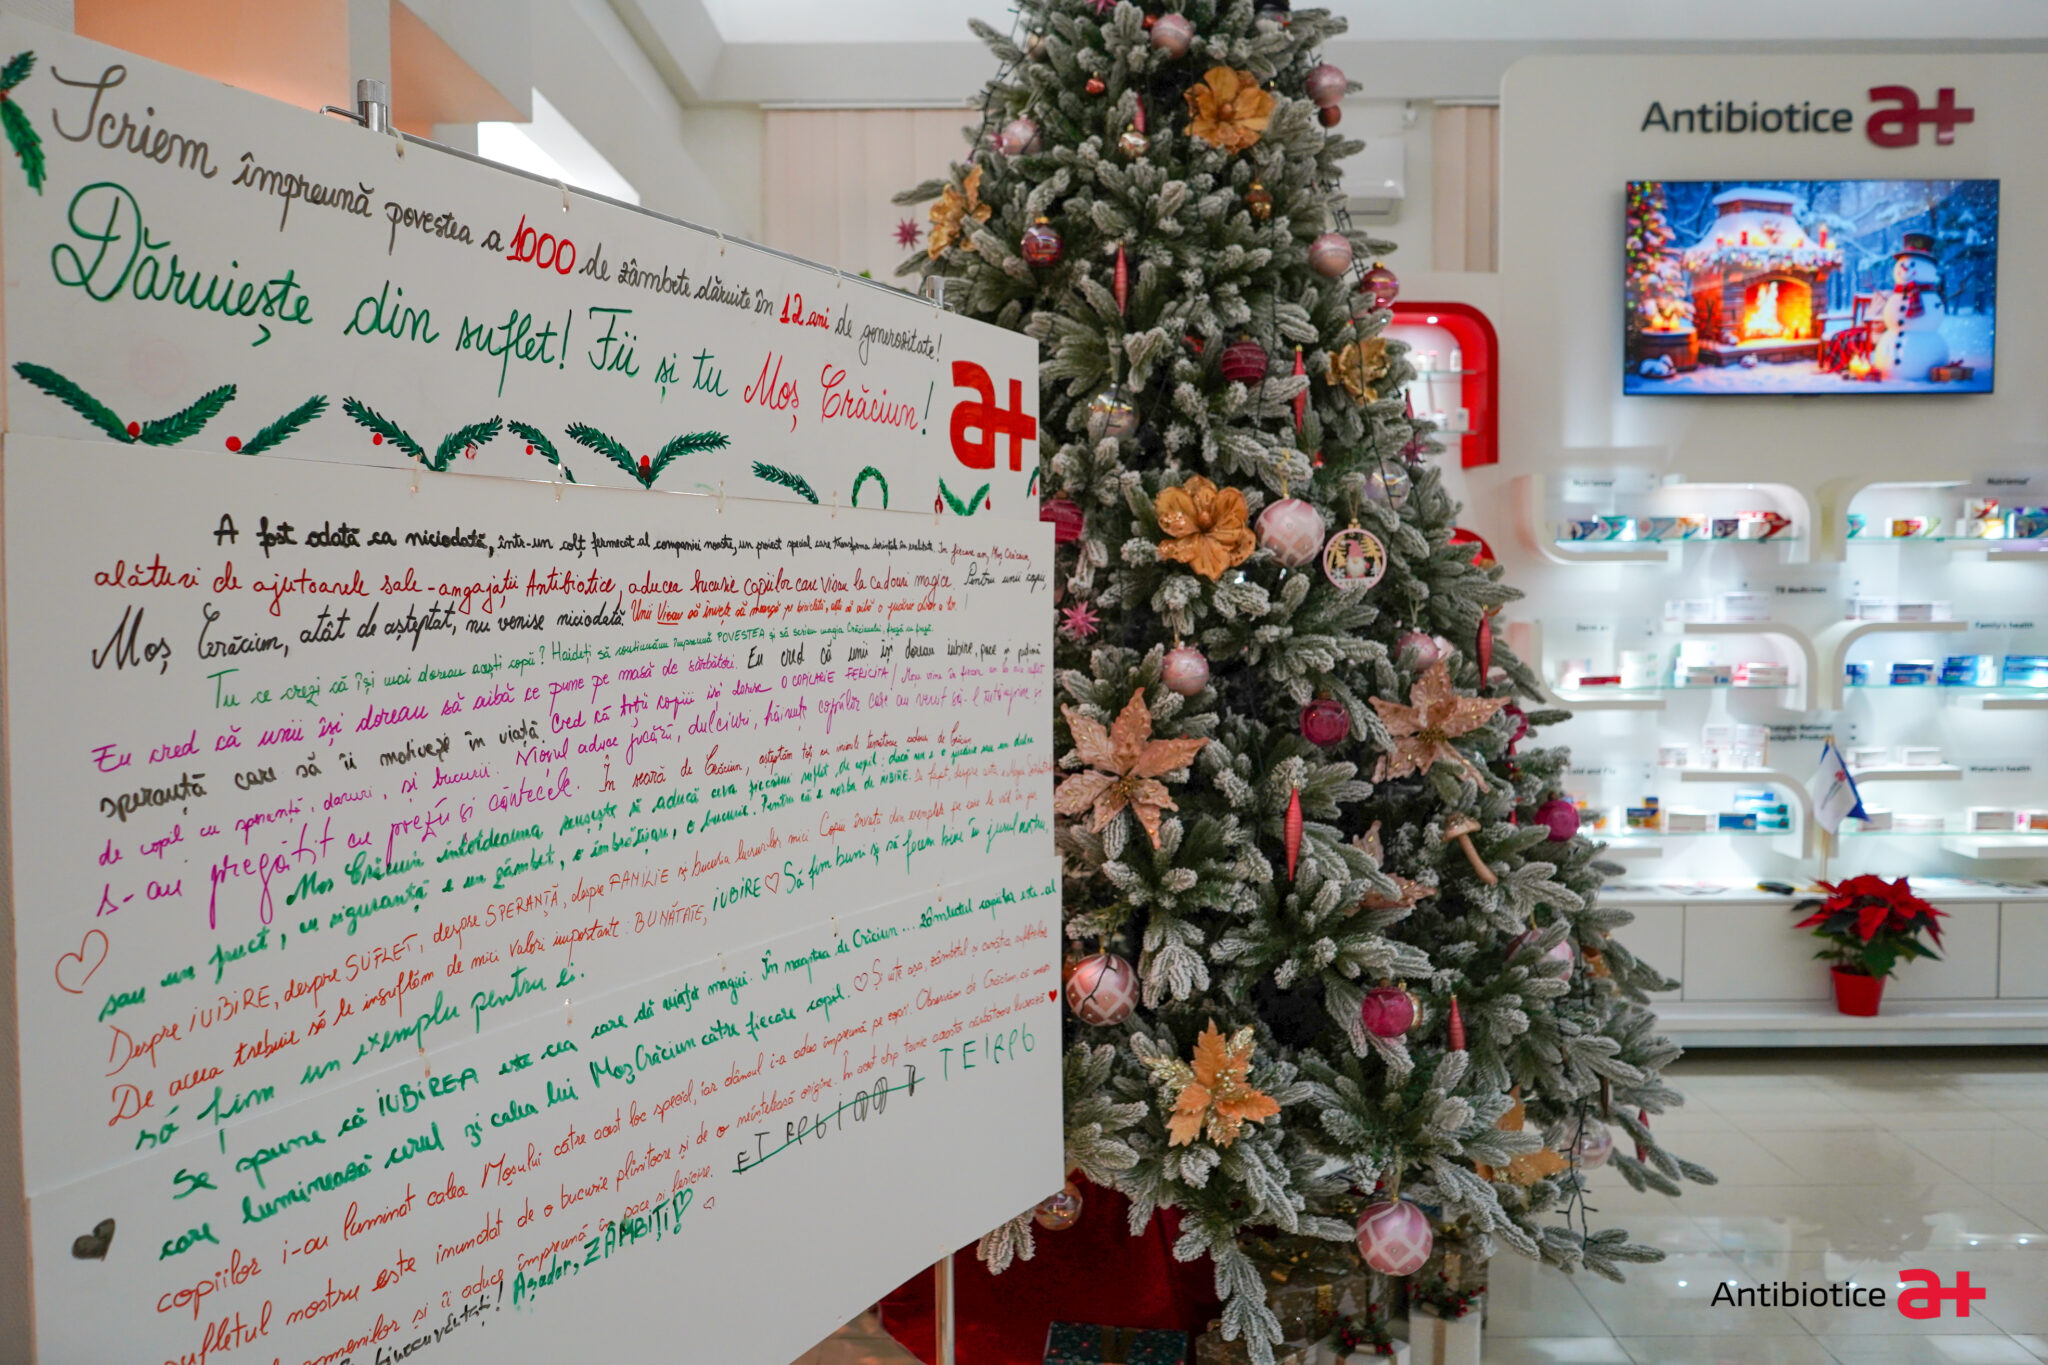 Scriem împreună povestea a 1000 de zâmbete dăruite în 12 ani de generozitate!
Dăruiește din suflet! Fii și tu Moș Crăciun!
a+
A fost odată ca niciodată, într-un colț fermecat al companiei noastre, un proiect special care transforma dorințele în realitate. În fiecare an, Moș Crăciun,
alături de ajutoarele sale - angajații Antibiotice, aducea bucurie copiilor care visau la cadouri magice. Pentru unii copii,
Moș Crăciun, atât de așteptat, nu venise niciodată. Unii visau să învețe să meargă pe bicicletă, alții să aibă o jucărie doar a lor.
Tu ce crezi că își mai doreau acești copii? Haideți să continuăm împreună POVESTEA și să scriem magia Crăciunului, frază cu frază.
Eu cred că unii își doreau să aibă ce pune pe masă de sărbători. Eu cred că unii își doreau iubire, pace și puțină
speranță care să îi motiveze în viață. Cred că toți copiii își doresc O COPILĂRIE FERICITĂ! Moșu vine în fiecare an cu
de copil cu speranță, daruri, și bucurii. Moșul aduce jucării, dulciuri, hăinuțe copiilor care au vrut să-l întâmpine și
s-au pregătit cu poezii și cântecele. În seară de Crăciun, așteptăm toți cu
Moș Crăciun întotdeauna reușește să aducă ceva fiecărui suflet de copil: dacă nu e o jucărie sau un dulce
sau un fruct, cu siguranță e un zâmbet, o îmbrățișare, o bucurie. Pentru că e vorba de IUBIRE. De fapt, despre asta e Magia
Despre IUBIRE, despre SUFLET, despre SPERANȚĂ, despre FAMILIE și bucuria lucrurilor mici. Copiii învață din exemplele pe care le văd în jur.
De aceea trebuie să le insuflăm de mici valori importante: BUNĂTATE, IUBIRE ♡ Să fim buni și să facem bine în jurul nostru,
să fim un exemplu pentru ei.
Se spune că IUBIREA este cea care dă viață magiei. În noaptea de Crăciun ... zâmbetul copiilor este al
care luminează cerul și calea lui Moș Crăciun către fiecare copil. ♡ Și uite așa, zâmbetul și curăția sufletelor
copiilor i-au luminat calea Moșului către acest loc special, iar dânsul i-a adus împreună pe copii. Observăm de Crăciun, că
sufletul nostru este inundat de o bucurie plinitoare și de o neînțeleasă origine. În acest chip
oamenilor și îi aduce împreună în pace și fericire. TEIRPG
Așadar, ZÂMBIȚI!
Antibiotice a+
Nutriensa
Nutriensa
TB Medicines
Derm a+
Family's health
Cold and Flu
Woman's health
Antibiotice a+